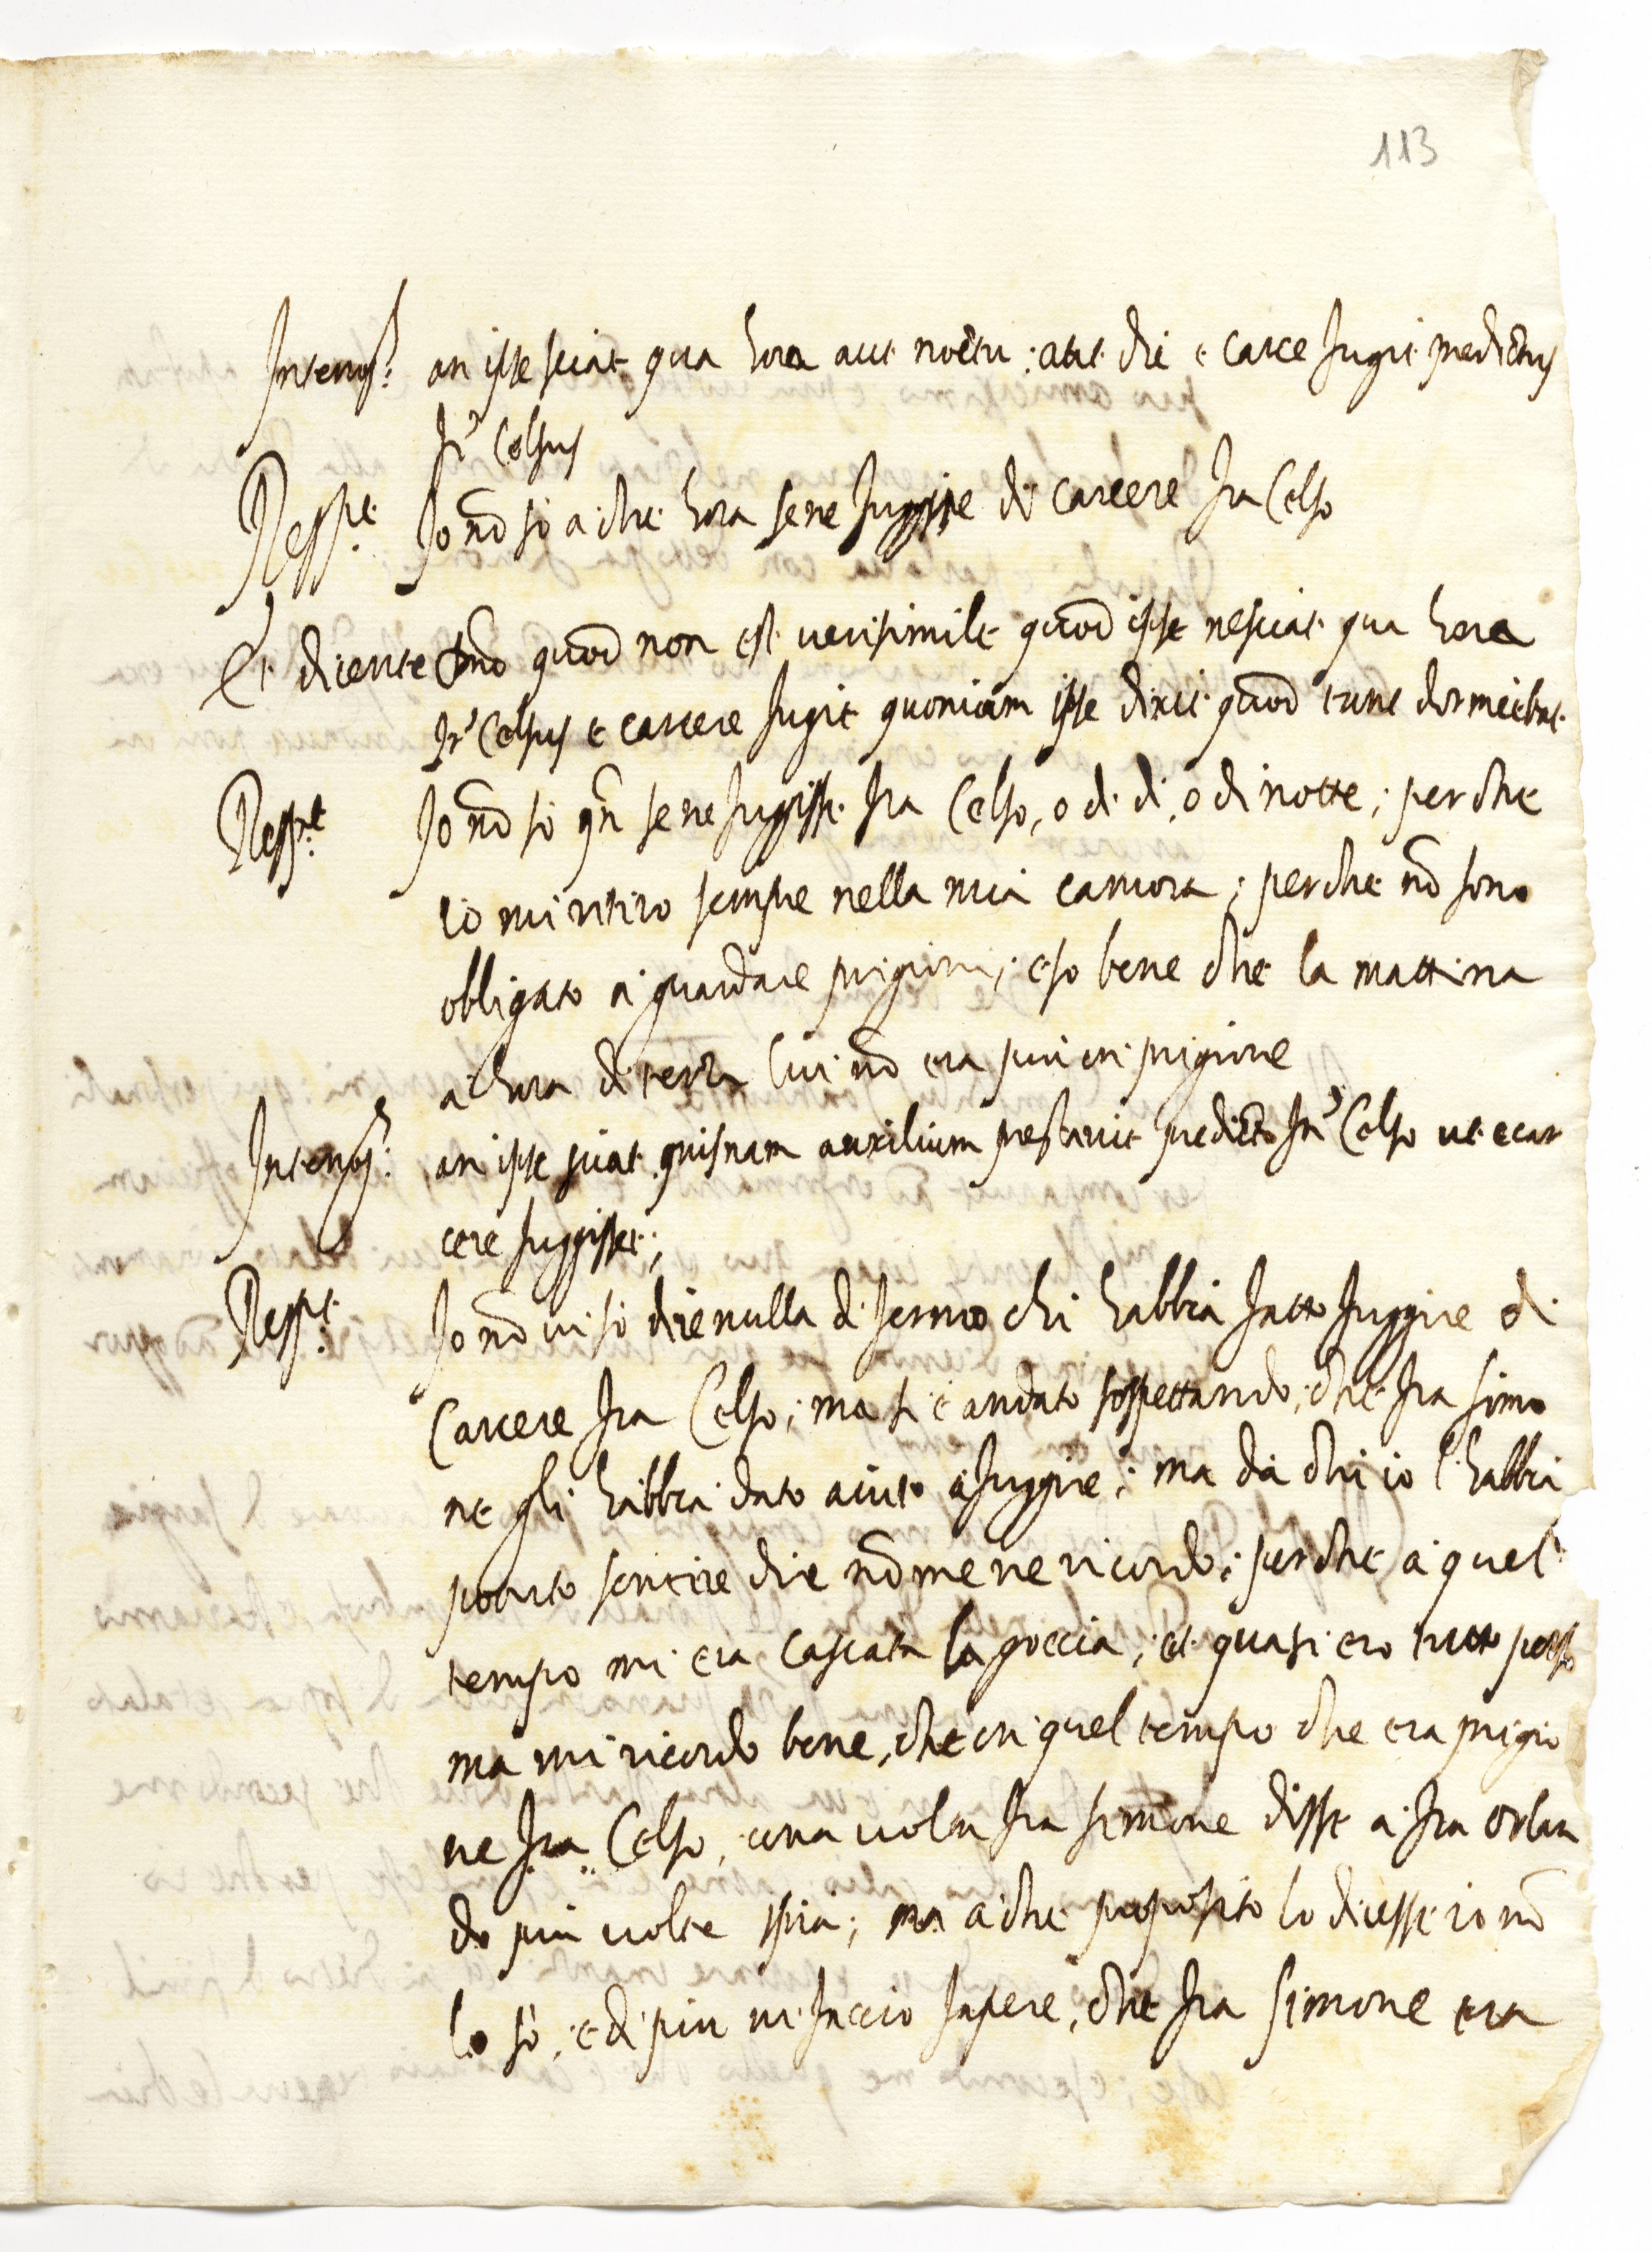 113
Interrog.s an ipse sciat qua hora aut noctu: aut die e carce fugit predictus
fr Celsus
Resp.t Io nō sò a che hora se ne fuggire di carcere fra Celso
Et dicente quod non est verisimile quod ipse nesciat qua hora
fr Celsus e carcere fugit quoniam ipse dixit quod tunc dormiebat
Resp.t Io nō sò qn se ne fuggisse fra Celso, o di di, o di notte; perche
io mi ritiro sempre nella mia camora; perche nō sono
obligato a guardare prigioni; e so bene che la mattina
a hora di terza lui nō era piu in prigione
Interrog.s an ipse sciat quisnam auxilium prestavit predicto fr Celso ut e car
cere fuggisset;
Resp.t Io nō vi sò dire nulla di fermo chi habbia fatto fuggire di
Carcere fra Celso; ma si è andato sospettando, che fra Simo
ne gli habbia dato aiuto a fuggire; ma da chi io l habbi
potuto sentire dire nō me ne ricordo; perche a quel
tempo mi era cascata la goccia; et quasi ero tutto perso
ma mi ricordo bene, che in quel tempo che era prigio
ne fra Celso, una volta fra Simone disse a fra Orlan
do piu volte spia; ma a che proposito lo dicesse io nō
lo sò, e di piu vi faccio sapere, che fra Simone era